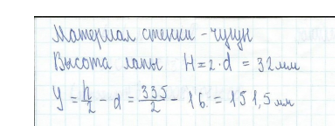 Материал стенки - чугун
Высота лапы H = 2·d = 32 мм
y = h/2 - d = 335/2 - 16 = 151,5 мм